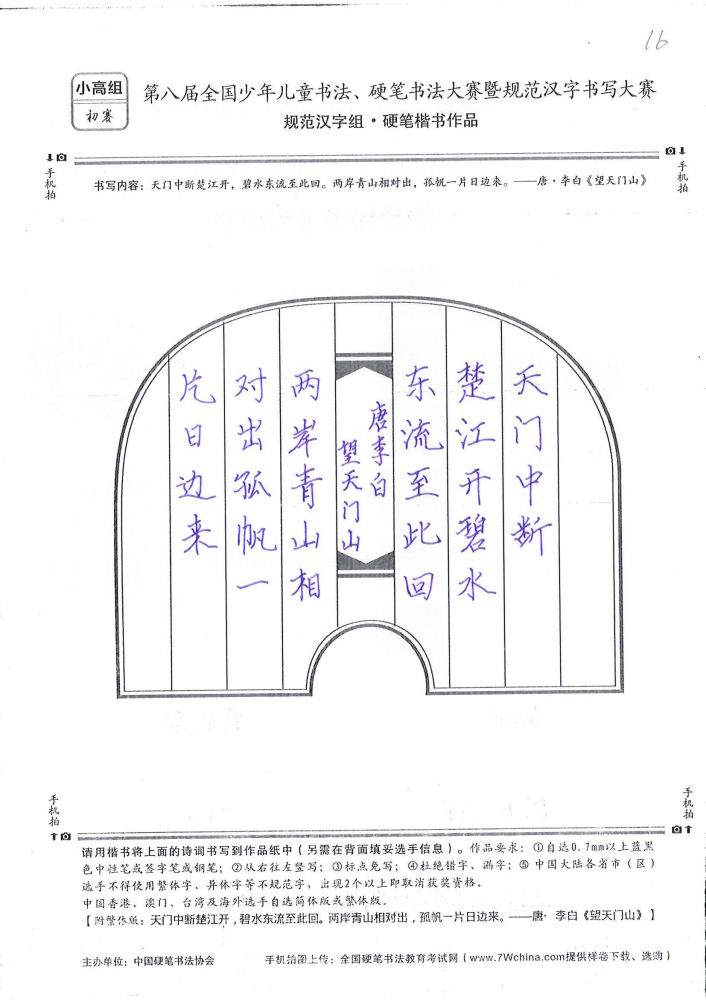 16
小高组
初赛
第八届全国少年儿童书法、硬笔书法大赛暨规范汉字书写大赛
规范汉字组·硬笔楷书作品
手机拍
手机拍
书写内容：天门中断楚江开，碧水东流至此回。两岸青山相对出，孤帆一片日边来。——唐·李白《望天门山》
天门中断
楚江开碧水
东流至此回
唐李白
望天门山
两岸青山相
对出孤帆一
片日边来
手机拍
手机拍
请用楷书将上面的诗词书写到作品纸中（另需在背面填妥选手信息）。作品要求：①自选0.7mm以上蓝黑
色中性笔或签字笔或钢笔；②从右往左竖写；③标点免写；④杜绝错字、漏字；⑤中国大陆各省市（区）
选手不得使用繁体字、异体字等不规范字，出现2个以上即取消获奖资格。
中国香港、澳门、台湾及海外选手自选简体版或繁体版。
【附繁体版：天门中断楚江开，碧水东流至此回。两岸青山相对出，孤帆一片日边来。——唐·李白《望天门山》】
主办单位：中国硬笔书法协会
手机拍图上传：全国硬笔书法教育考试网（www.7Wchina.com提供样卷下载、选购）